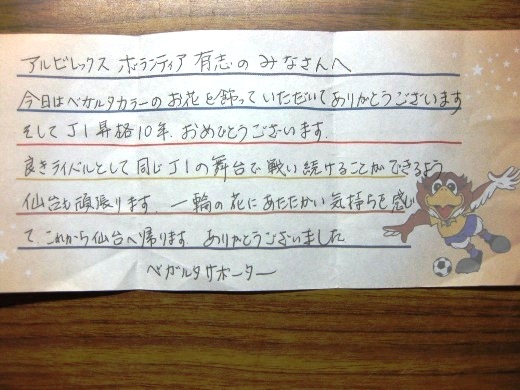 アルビレックス ボランティア 有志のみなさんへ
今日はベガルタカラーのお花を飾っていただいてありがとうございます
そしてJ1昇格10年、おめでとうございます。
良きライバルとして同じJ1の舞台で戦い続けることができるよう
仙台も頑張ります。一輪の花にあたたかい気持ちを感じ
て、これから仙台へ帰ります。ありがとうございました
ベガルタサポーター